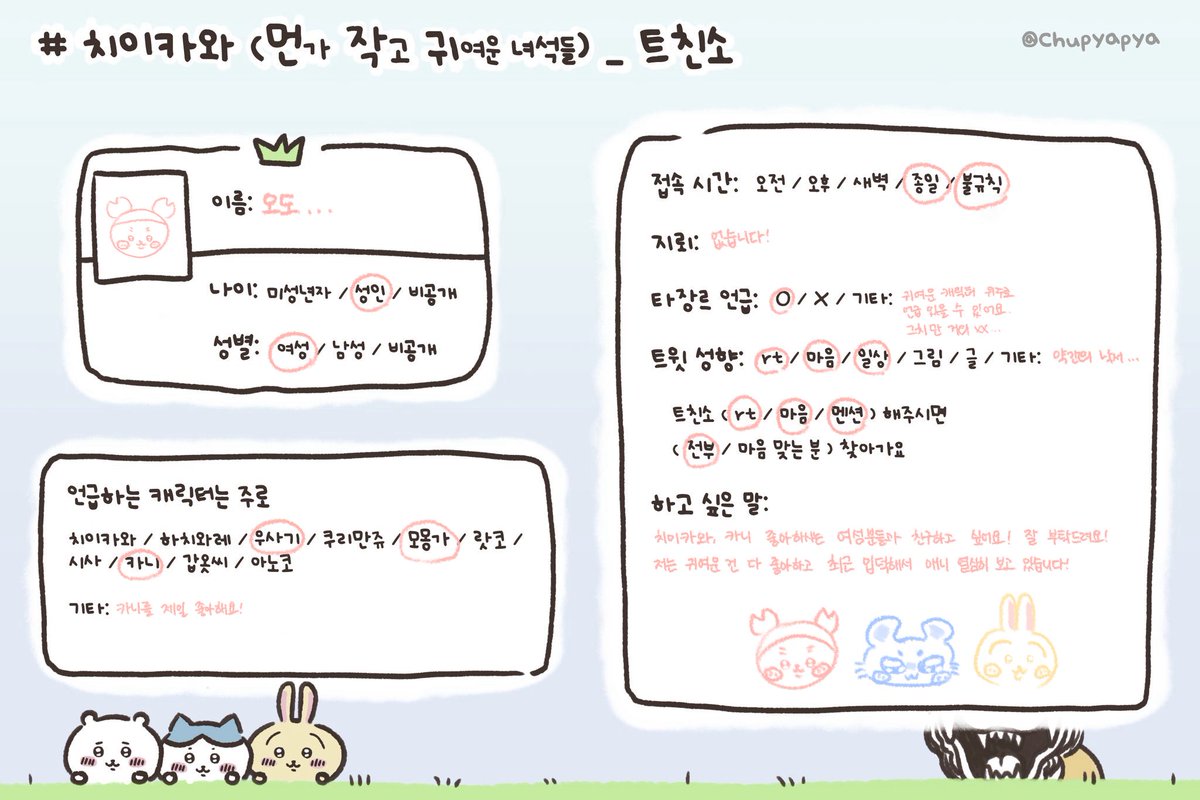 # 치이카와 (먼가 작고 귀여운 녀석들) _ 트친소
@Chupyapya
이름: 오도...
나이: 미성년자 / 성인 / 비공개
성별: 여성 / 남성 / 비공개
언급하는 캐릭터는 주로
치이카와 / 하치와레 / 우사기 / 쿠리만쥬 / 모몽가 / 랏코 /
시사 / 카니 / 갑옷씨 / 아노코
기타: 카니를 제일 좋아해요!
접속 시간: 오전 / 오후 / 새벽 / 종일 / 불규칙
지뢰: 없습니다!
타장르 언급: O / X / 기타: 귀여운 캐릭터 위주로
언급 있을 수 있어요.
그치만 거의 xx...
트윗 성향: rt / 마음 / 일상 / 그림 / 글 / 기타: 약간의 낙서...
트친소 ( rt / 마음 / 멘션 ) 해주시면
( 전부 / 마음 맞는 분 ) 찾아가요
하고 싶은 말:
치이카와, 카니 좋아하시는 여성분들과 친구하고 싶어요! 잘 부탁드려요!
저는 귀여운 건 다 좋아하고 최근 입덕해서 애니 열심히 보고 있습니다!